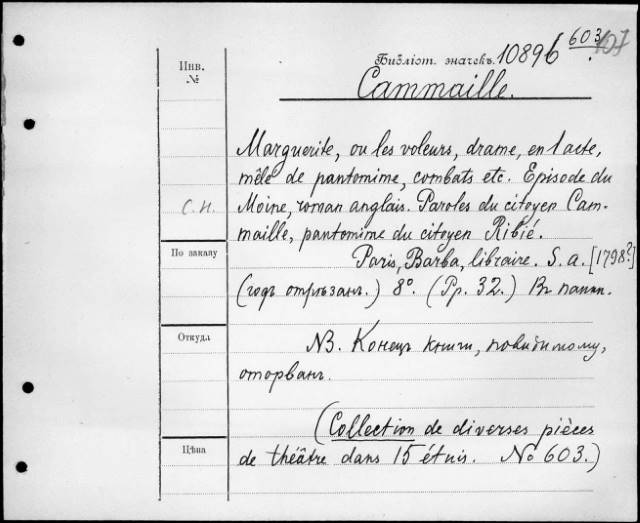 603
107
Инв.
№
Библіот. значекъ. 10896
Cammaille.
Marguerite, ou les voleurs, drame, en 1 acte,
mêlé de pantomime, combats etc. Episode du
С.Н. Moine, roman anglais. Paroles du citoyen Cam-
maille, pantomime du citoyen Ribié.
По заказу
Paris, Barba, libraire. S. a. [1798?]
(годъ отрѣзанъ.) 8°. (Pp. 32.) Въ папк.
Откуда
NB. Конецъ книги, повидимому,
оторванъ.
(Collection de diverses pièces
Цѣна
de théâtre dans 15 étuis. No 603.)